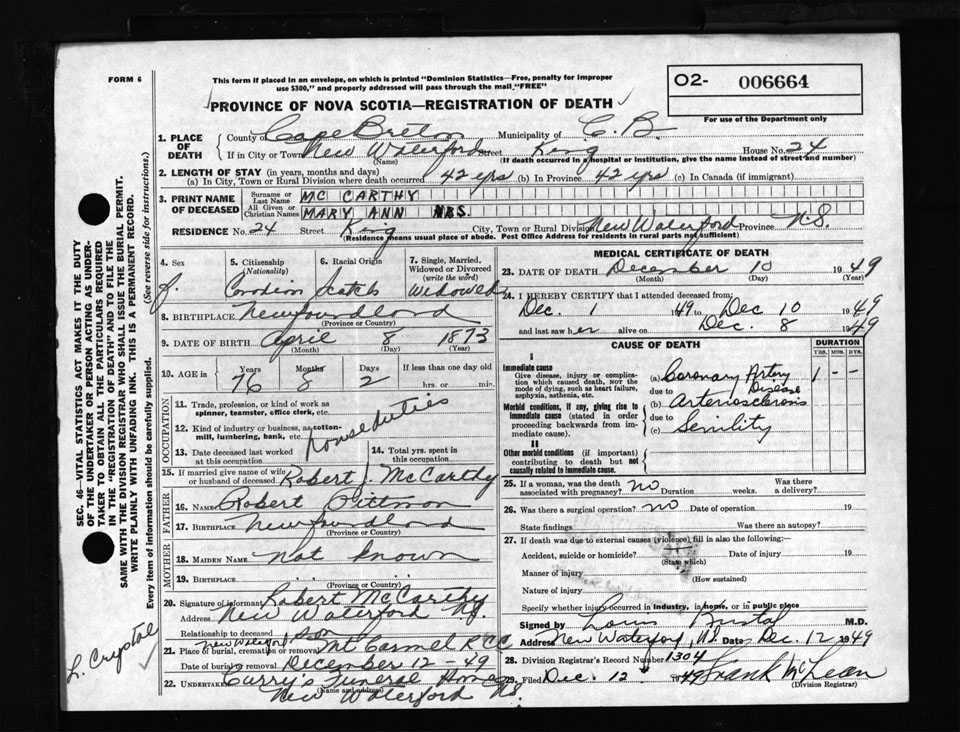 FORM 6
This form if placed in an envelope, on which is printed "Dominion Statistics—Free, penalty for improper
use $300," and properly addressed will pass through the mail "FREE"
O2- 006664
For use of the Department only
PROVINCE OF NOVA SCOTIA—REGISTRATION OF DEATH
1. PLACE OF DEATH
County of Cape Breton Municipality of C.B.
If in City or Town New Waterford Street King House No. 24
(Name) (If death occurred in a hospital or institution, give the name instead of street and number)
2. LENGTH OF STAY (in years, months and days)
(a) In City, Town or Rural Division where death occurred 42 yrs (b) In Province 42 yrs (c) In Canada (if immigrant)
3. PRINT NAME OF DECEASED
Surname or Last Name MC CARTHY
All Given or Christian Names MARY ANN MRS.
RESIDENCE No. 24 Street King City, Town or Rural Division New Waterford Province N.S.
(Residence means usual place of abode. Post Office Address for residents in rural parts not sufficient)
4. Sex 5. Citizenship (Nationality) 6. Racial Origin 7. Single, Married, Widowed or Divorced (write the word)
f. Canadian Scotch Widowed
8. BIRTHPLACE Newfoundland
(Province or Country)
9. DATE OF BIRTH April 8 1873
(Month) (Day) (Year)
10. AGE in Years Months Days If less than one day old
76 8 2 hrs. or min.
OCCUPATION
11. Trade, profession, or kind of work as
spinner, teamster, office clerk, etc.
12. Kind of industry or business, as cotton-
mill, lumbering, bank, etc.
house duties
13. Date deceased last worked
at this occupation
14. Total yrs. spent in
this occupation
15. If married give name of wife
or husband of deceased Robert J. McCarthy
FATHER
16. Name Robert Pittman
17. Birthplace Newfoundland
(Province or Country)
MOTHER
18. Maiden Name Not known
19. Birthplace
(Province or Country)
20. Signature of informant Robert McCarthy
Address New Waterford N.S.
Relationship to deceased son
21. Place of burial, cremation or removal New Waterford Mt Carmel R.C.C.
Date of burial or removal December 12-49
22. Undertaker Curry's Funeral Home
(Name and address)
New Waterford N.S.
MEDICAL CERTIFICATE OF DEATH
23. DATE OF DEATH December 10 1949
(Month) (Day) (Year)
24. I HEREBY CERTIFY that I attended deceased from
Dec. 1 1949 to Dec 10 1949
and last saw her alive on Dec. 8 1949
CAUSE OF DEATH
DURATION
YRS. MOS. DYS.
I
Immediate cause
Give disease, injury or complica-
tion which caused death, NOT the
mode of dying, such as heart failure,
asphyxia, asthenia, etc.
(a) Coronary Artery Disease 1 - -
due to
Morbid conditions, if any, giving rise to
immediate cause (stated in order
proceeding backwards from im-
mediate cause).
(b) Arteriosclerosis
due to
(c) Senility
II
Other morbid conditions (if important)
contributing to death but not
causally related to immediate cause.
25. If a woman, was the death
associated with pregnancy? no Duration weeks. Was there
a delivery?
26. Was there a surgical operation? no Date of operation 19
State findings Was there an autopsy?
27. If death was due to external causes (violence) fill in also the following:—
Accident, suicide or homicide? Date of injury 19
(State which)
Manner of injury
(How sustained)
Nature of injury
Specify whether injury occurred in industry, in home, or in public place
Signed by M.D.
Address New Waterford, N.S. Date Dec. 12 1949
28. Division Registrar's Record Number 1304
29. Filed Dec. 12 1949 Frank McLean
(Division Registrar)
SEC. 46—VITAL STATISTICS ACT MAKES IT THE DUTY
OF THE UNDERTAKER OR PERSON ACTING AS UNDER-
TAKER TO OBTAIN ALL THE PARTICULARS REQUIRED
IN THE "REGISTRATION OF DEATH" AND TO FILE THE
SAME WITH THE DIVISION REGISTRAR WHO SHALL ISSUE THE BURIAL PERMIT.
WRITE PLAINLY WITH UNFADING INK. THIS IS A PERMANENT RECORD.
Every item of information should be carefully supplied. (See reverse side for instructions.)
L. Crystal